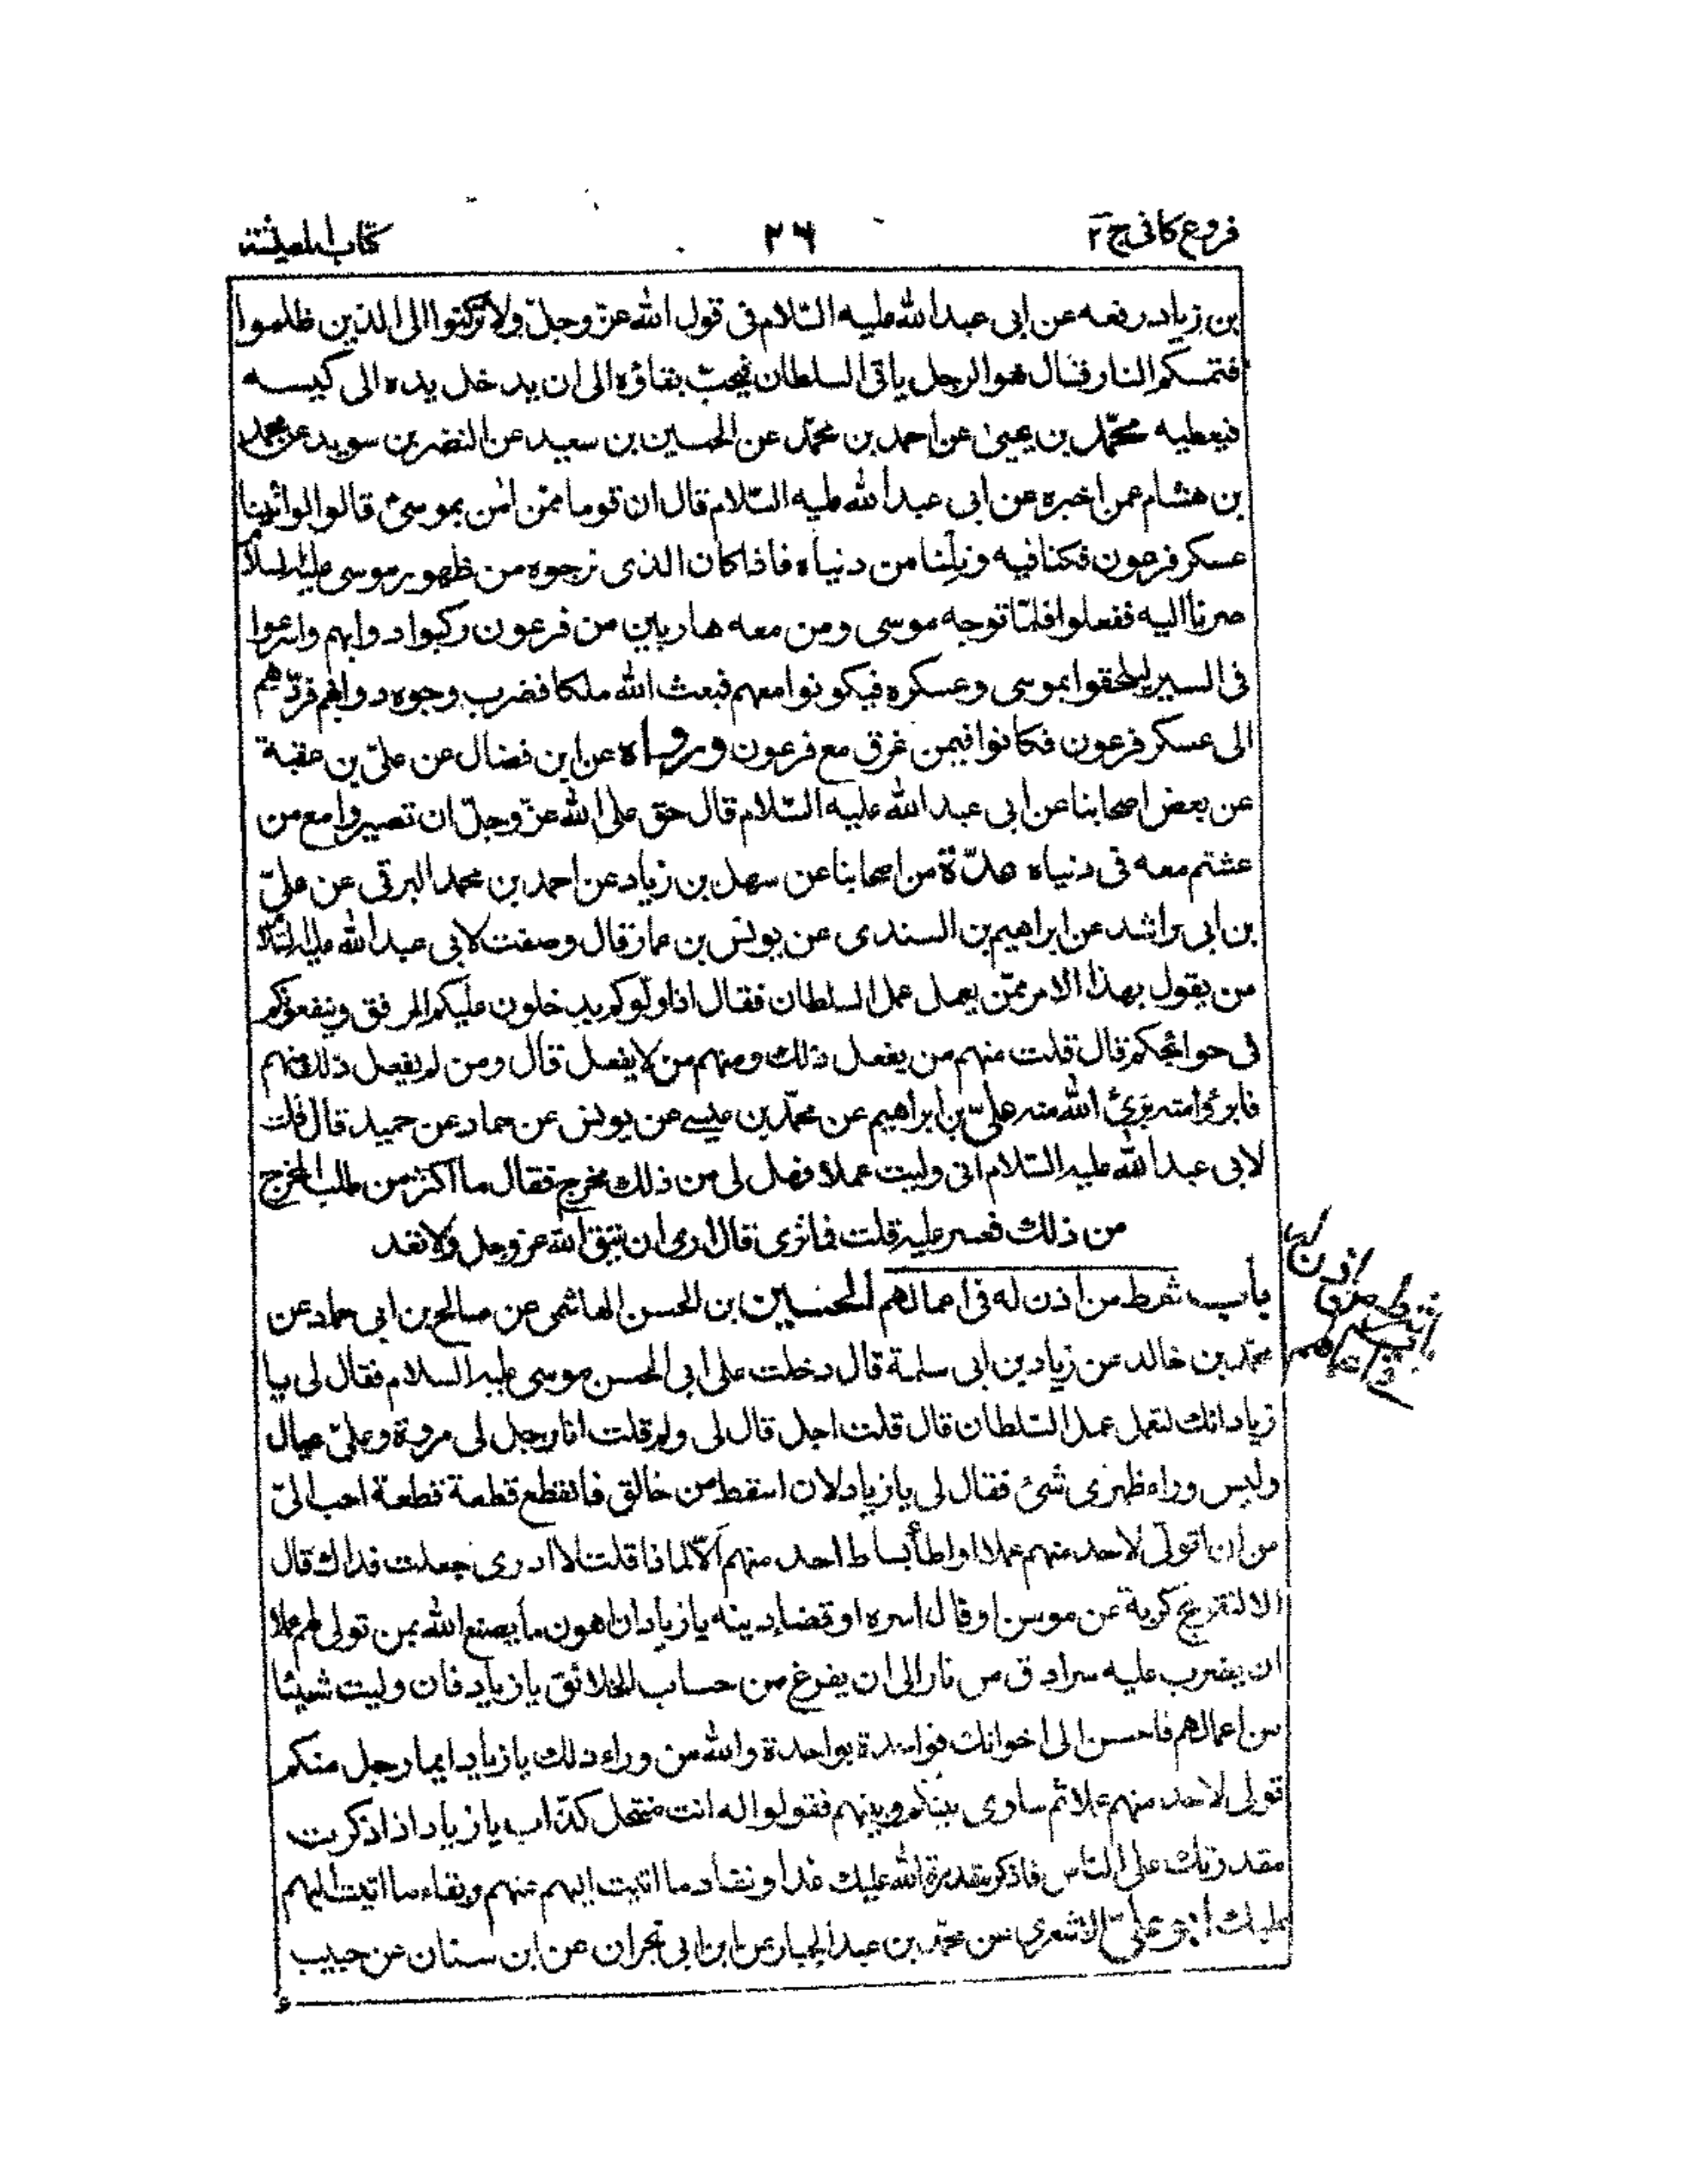 فروع كافى ج ٢
٣٦
كتاب المعيشة
بن زياد رفعه عن ابى عبد الله عليه السّلام فى قول الله عزّ وجلّ ولا تركنوا الى الذين ظلموا
فتمسكم النار فقال هو الرجل ياتى السلطان فيحب بقاؤه الى ان يدخل يده الى كيسه
فيعطيه محمّد بن يحيى عن احمد بن محمّد عن الحسين بن سعيد عن النضر بن سويد عن محمد
بن هشام عمن اخبره عن ابى عبد الله عليه السّلام قال ان قوما ممّن امن بموسى قالوا لو اتينا
عسكر فرعون فكنا فيه ونلنا من دنياه فاذا كان الذى نرجوه من ظهور موسى عليه السلام
صرنا اليه ففعلوا فلمّا توجه موسى ومن معه هاربين من فرعون ركبوا دوابهم واسرعوا
فى السير ليلحقوا بموسى وعسكره فيكونوا معهم فبعث الله ملكا فضرب وجوه دوابهم فردّهم
الى عسكر فرعون فكانوا فيمن غرق مع فرعون ورواه عن ابن فضال عن علىّ بن عقبة
عن بعض اصحابنا عن ابى عبد الله عليه السّلام قال حق على الله عزّ وجلّ ان تصيروا مع من
عشتم معه فى دنياه عدّة من اصحابنا عن سهل بن زياد عن احمد بن محمد البرقى عن علىّ
بن ابى راشد عن ابراهيم بن السندى عن يونس بن عمار قال وصفت لابى عبد الله عليه السّلام
من يقول بهذا الامر ممّن يعمل عمل السلطان فقال اذا ولّوكم يدخلون عليكم المرفق وينفعونكم
فى حوائجكم قال قلت منهم من يفعل ذلك ومنهم من لا يفعل قال ومن لم يفعل ذلك منهم
فابرؤا منه برئ الله منه علىّ بن ابراهيم عن محمّد بن عيسى عن يونس عن حماد عن حميد قال قلت
لابى عبد الله عليه السّلام انى وليت عملا فهل لى من ذلك مخرج فقال ما اكثر من طلب المخرج
من ذلك فعسر عليه قلت فما ترى قال ارى ان تتقى الله عز وجل ولا تعد
باب شرط من اذن له فى اعمالهم الحسين بن الحسن الهاشمى عن صالح بن ابى حماد عن
محمّد بن خالد عن زياد بن ابى سلمة قال دخلت على ابى الحسن موسى عليه السلام فقال لى يا
زياد انك لتعمل عمل السّلطان قال قلت اجل قال لى ولم قلت انا رجل لى مروة وعلىّ عيال
وليس وراء ظهرى شئ فقال لى يا زياد لان اسقط من خالق فاتقطع قطعة قطعة احب الىّ
من ان اتولّى لاحد منهم عملا او اطأ بساط احد منهم الّا لماذا قلت لا ادرى جعلت فداك قال
الا لتفريج كربة عن مومن او فك اسره او قضاء دينه يا زياد ان اهون ما يصنع الله بمن تولى لهم عملا
ان يضرب عليه سرادق من نار الى ان يفرغ من حساب الخلائق يا زياد فان وليت شيئا
من اعمالهم فاحسن الى اخوانك فواحدة بواحدة والله من وراء ذلك يا زياد ايما رجل منكم
تولى لاحد منهم عملا ثم ساوى بينكم وبينهم فقولوا له انت منتحل كذّاب يا زياد اذا ذكرت
مقدرتك على النّاس فاذكر مقدرة الله عليك غدا ونفاد ما اتيت اليهم عنهم وبقاء ما اتيت اليهم
عليك ابو علىّ الاشعرى عن محمّد بن عبد الجبار عن ابن ابى نجران عن ابن سنان عن حبيب